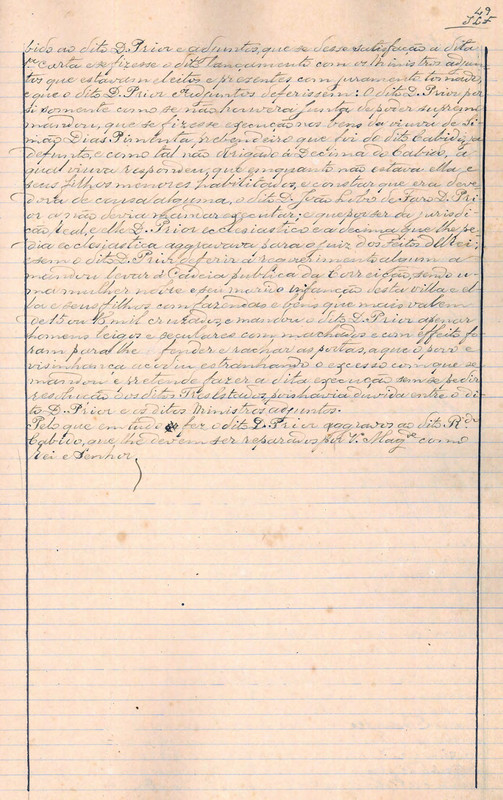 49
bido ao dito D. Prior e adjuntos, que se desse satisfação a dita
carta e se fizesse o dito lançamento com os Ministros adjun
tos que estavam eleitos e presentes com juramento tomado,
e que o dito D. Prior e Adjuntos deferissem: O dito D. Prior por
si somente como se não houvera Junta de poder supremo
mandou, que se fizesse execução nos bens da viuva de Si
mão Dias Pimenta, prebendeiro que foi do dito Cabido, ja
defunto, e como tal não obrigado á Decima do Cabido, a
qual viuva respondeu, que enquanto não estava ella, e
seus filhos menores habilitados, e constar que era deve
dora de cousa alguma, o dito D. João Lobo de Faro D. Pri
or a não devia mandar executar; e que por ser da jurisdi
ção Real, e elle D. Prior ecclesiastico e a decima que lhe pe
dia ecclesiastica aggravava para o juiz dos feitos d'El rei;
e sem o dito D. Prior deferir a requerimento algum a
mandou levar á Cadeia publica da Correição, sendo u
ma mulher nobre e seu marido Infanção desta villa e el
la e seus filhos com fazendas e bens que mais valem
de 15 ou mil cruzados, e mandou o dito D. Prior a
homens leigos e seculares com machados e com effeito fo
ram para lhe fender e rachar as portas, a que o povo e
visinhança acudiu estranhando o excesso com que se
mandou e pretende fazer a dita execução sem se pedir
resolução dos ditos Tres Estados, pois havia duvida entre o di
to D. Prior e os ditos Ministros adjuntos.
Pelo que em tudo fez o dito D. Prior aggravos ao dito Rdo
Cabido, que lhe devem ser reparados por V. Magde como
Rei e Senhor